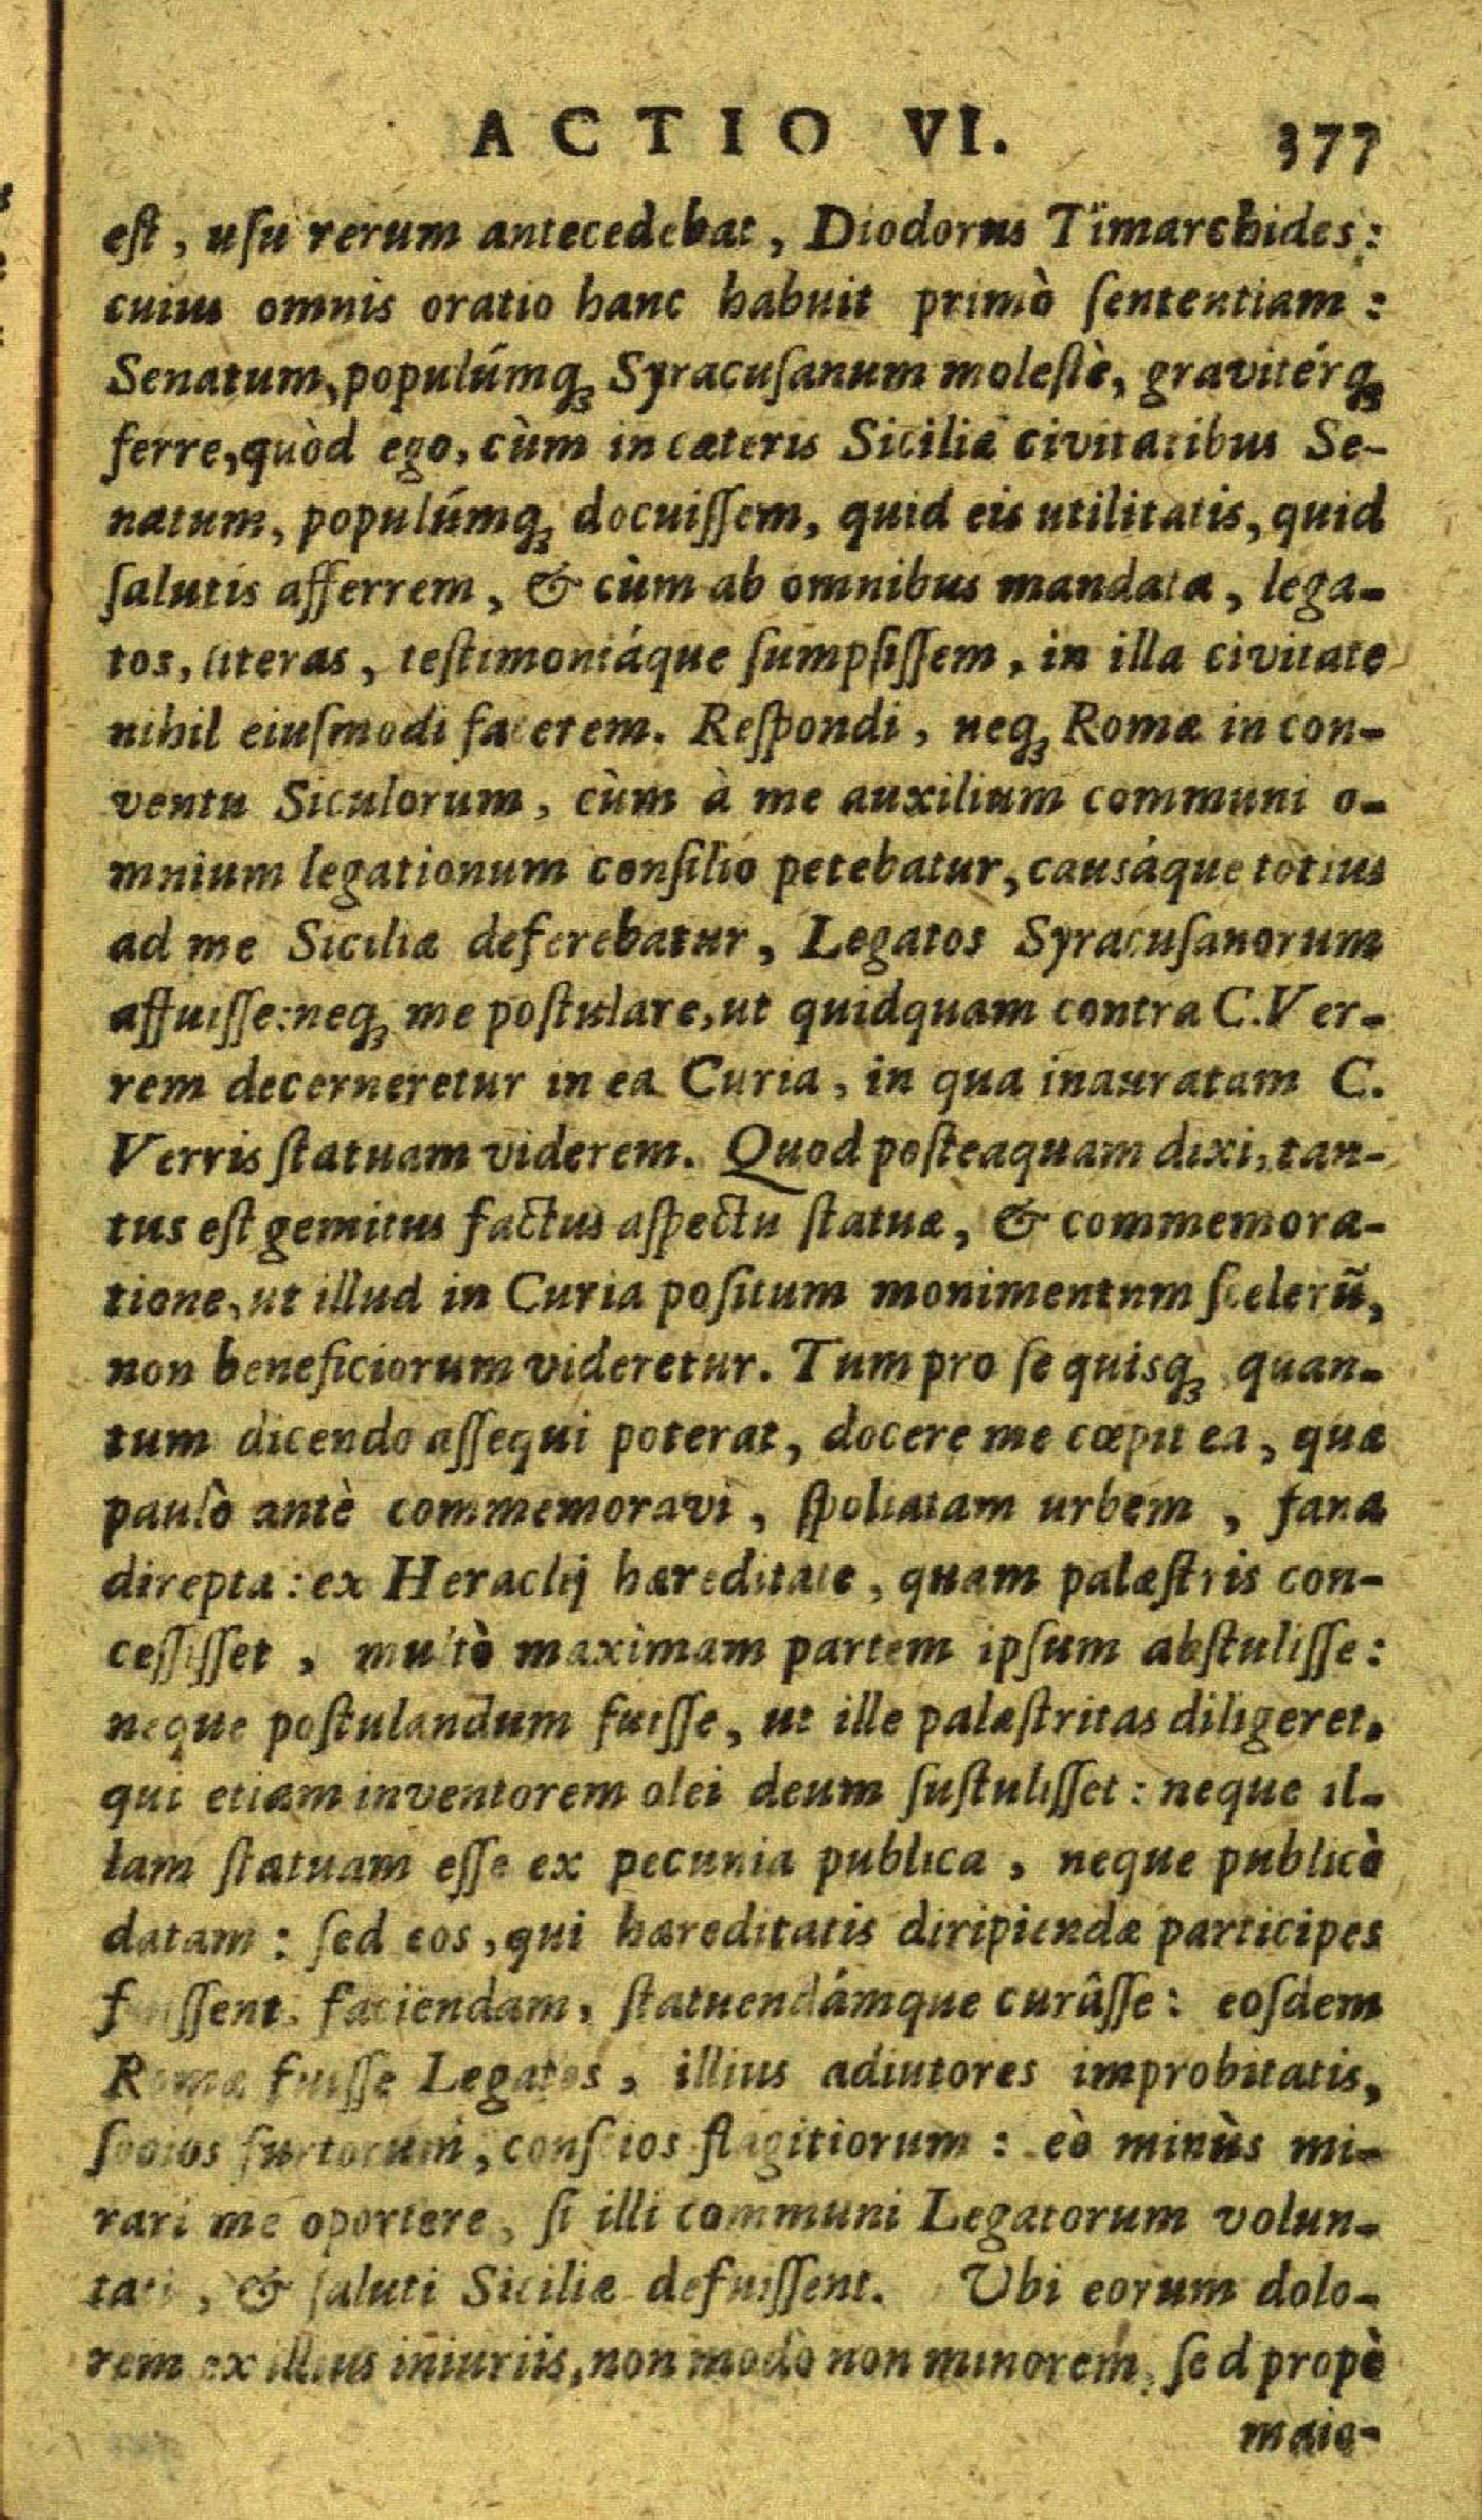 ACTIO VI. 377
eſt, uſu rerum antecedebat, Diodorus Timarchides:
cuius omnis oratio hanc habuit primò ſententiam:
Senatum, populúmq; Syracuſanum moleſtè, gravitérq;
ferre, quòd ego, cùm in cæteris Siciliæ civitatibus Se-
natum, populúmq; docuiſſem, quid eis utilitatis, quid
ſalutis afferrem, & cùm ab omnibus mandata, lega-
tos, literas, teſtimoniáque ſumpſiſſem, in illa civitate
nihil eiuſmodi facerem. Reſpondi, neq; Romæ in con-
ventu Siculorum, cùm à me auxilium communi o-
mnium legationum conſilio petebatur, causáque totius
ad me Siciliæ deferebatur, Legatos Syracuſanorum
affuiſſe: neq; me poſtulare, ut quidquam contra C. Ver-
rem decerneretur in ea Curia, in qua inauratam C.
Verris ſtatuam viderem. Quod poſteaquam dixi, tan-
tus eſt gemitus factus aſpectu ſtatuæ, & commemora-
tione, ut illud in Curia poſitum monimentum ſcelerũ,
non beneficiorum videretur. Tum pro ſe quisq; quan-
tum dicendo aſſequi poterat, docere me cœpit ea, quæ
paulò antè commemoravi, ſpoliatam urbem, fana
direpta: ex Heraclij hæreditate, quam palæſtris con-
ceſſiſſet, multò maximam partem ipſum abſtuliſſe:
neque poſtulandum fuiſſe, ut ille palæſtritas diligeret,
qui etiam inventorem olei deum ſuſtuliſſet: neque il-
lam ſtatuam eſſe ex pecunia publica, neque publicè
datam: ſed eos, qui hæreditatis diripiendæ participes
fuiſſent, faciendam, ſtatuendámque curâſſe: eoſdem
Romæ fuiſſe Legatos, illius adiutores improbitatis,
ſocios furtorum, conſcios flagitiorum: eò minùs mi-
rari me oportere, ſi illi communi Legatorum volun-
tati, & ſaluti Siciliæ defuiſſent. Ubi eorum dolo-
rem ex illius iniuriis, non modò non minorem, ſed propè
maio-